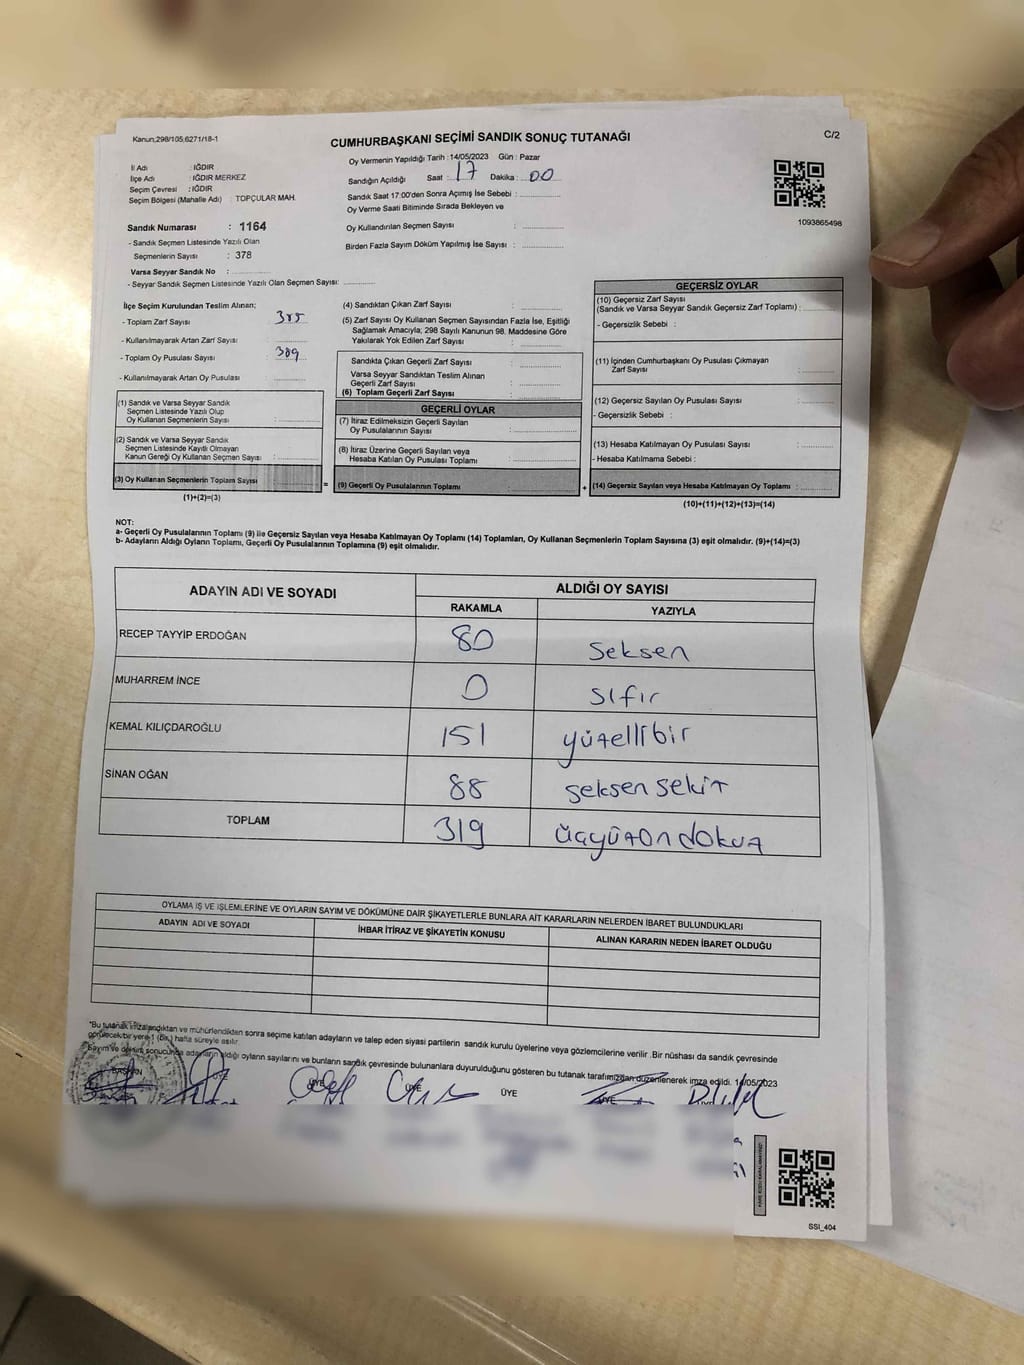 Kanun;298/105;6271/18-1
CUMHURBAŞKANI SEÇİMİ SANDIK SONUÇ TUTANAĞI
C/2
İl Adı : IĞDIR
İlçe Adı : IĞDIR MERKEZ
Seçim Çevresi : IĞDIR
Seçim Bölgesi (Mahalle Adı) : TOPÇULAR MAH.
Sandık Numarası : 1164
- Sandık Seçmen Listesinde Yazılı Olan
Seçmenlerin Sayısı : 378
Varsa Seyyar Sandık No :
- Seyyar Sandık Seçmen Listesinde Yazılı Olan Seçmen Sayısı:
Oy Vermenin Yapıldığı Tarih : 14/05/2023 Gün : Pazar
Sandığın Açıldığı Saat : 17 Dakika : 00
Sandık Saat 17:00'den Sonra Açımış İse Sebebi :
Oy Verme Saati Bitiminde Sırada Bekleyen ve
Oy Kullandırılan Seçmen Sayısı :
Birden Fazla Sayım Döküm Yapılmış İse Sayısı :
1093865498
İlçe Seçim Kurulundan Teslim Alınan;
- Toplam Zarf Sayısı :
- Kullanılmayarak Artan Zarf Sayısı :
- Toplam Oy Pusulası Sayısı : 389
- Kullanılmayarak Artan Oy Pusulası :
(1) Sandık ve Varsa Seyyar Sandık
Seçmen Listesinde Yazılı Olup
Oy Kullanan Seçmenlerin Sayısı :
(2) Sandık ve Varsa Seyyar Sandık
Seçmen Listesinde Kayıtlı Olmayan
Kanun Gereği Oy Kullanan Seçmen Sayısı :
(3) Oy Kullanan Seçmenlerin Toplam Sayısı
(1)+(2)=(3)
(4) Sandıktan Çıkan Zarf Sayısı :
(5) Zarf Sayısı Oy Kullanan Seçmen Sayısından Fazla İse, Eşitliği
Sağlamak Amacıyla; 298 Sayılı Kanunun 98. Maddesine Göre
Yakılarak Yok Edilen Zarf Sayısı :
Sandıkta Çıkan Geçerli Zarf Sayısı :
Varsa Seyyar Sandıktan Teslim Alınan
Geçerli Zarf Sayısı :
(6) Toplam Geçerli Zarf Sayısı :
GEÇERLİ OYLAR
(7) İtiraz Edilmeksizin Geçerli Sayılan
Oy Pusulalarının Sayısı :
(8) İtiraz Üzerine Geçerli Sayılan veya
Hesaba Katılan Oy Pusulası Toplamı :
= (9) Geçerli Oy Pusulalarının Toplamı
GEÇERSİZ OYLAR
(10) Geçersiz Zarf Sayısı
(Sandık ve Varsa Seyyar Sandık Geçersiz Zarf Toplamı) :
- Geçersizlik Sebebi :
(11) İçinden Cumhurbaşkanı Oy Pusulası Çıkmayan
Zarf Sayısı :
(12) Geçersiz Sayılan Oy Pusulası Sayısı :
- Geçersizlik Sebebi :
(13) Hesaba Katılmayan Oy Pusulası Sayısı :
- Hesaba Katılmama Sebebi :
+ (14) Geçersiz Sayılan veya Hesaba Katılmayan Oy Toplamı :
(10)+(11)+(12)+(13)=(14)
NOT:
a- Geçerli Oy Pusulalarının Toplamı (9) ile Geçersiz Sayılan veya Hesaba Katılmayan Oy Toplamı (14) Toplamları, Oy Kullanan Seçmenlerin Toplam Sayısına (3) eşit olmalıdır. (9)+(14)=(3)
b- Adayların Aldığı Oyların Toplamı, Geçerli Oy Pusulalarının Toplamına (9) eşit olmalıdır.
ADAYIN ADI VE SOYADI
ALDIĞI OY SAYISI
RAKAMLA YAZIYLA
RECEP TAYYİP ERDOĞAN 80 seksen
MUHARREM İNCE 0 sıfır
KEMAL KILIÇDAROĞLU 151 yüzellibir
SİNAN OĞAN 88 seksen sekiz
TOPLAM 319 üçyüzon dokuz
OYLAMA İŞ VE İŞLEMLERİNE VE OYLARIN SAYIM VE DÖKÜMÜNE DAİR ŞİKAYETLERLE BUNLARA AİT KARARLARIN NELERDEN İBARET BULUNDUKLARI
ADAYIN ADI VE SOYADI İHBAR İTİRAZ VE ŞİKAYETİN KONUSU ALINAN KARARIN NEDEN İBARET OLDUĞU
*Bu tutanak imzalandıktan ve mühürlendikten sonra seçime katılan adayların ve talep eden siyasi partilerin sandık kurulu üyelerine veya gözlemcilerine verilir .Bir nüshası da sandık çevresinde
görülecek bir yere 1 (bir.) hafta süreyle asılır.
Sayım ve döküm sonucunda adayların aldığı oyların sayılarını ve bunların sandık çevresinde bulunanlara duyurulduğunu gösteren bu tutanak tarafımızdan düzenlenerek imza edildi. 14/05/2023
BAŞKAN ÜYE ÜYE ÜYE ÜYE ÜYE
SSI_404